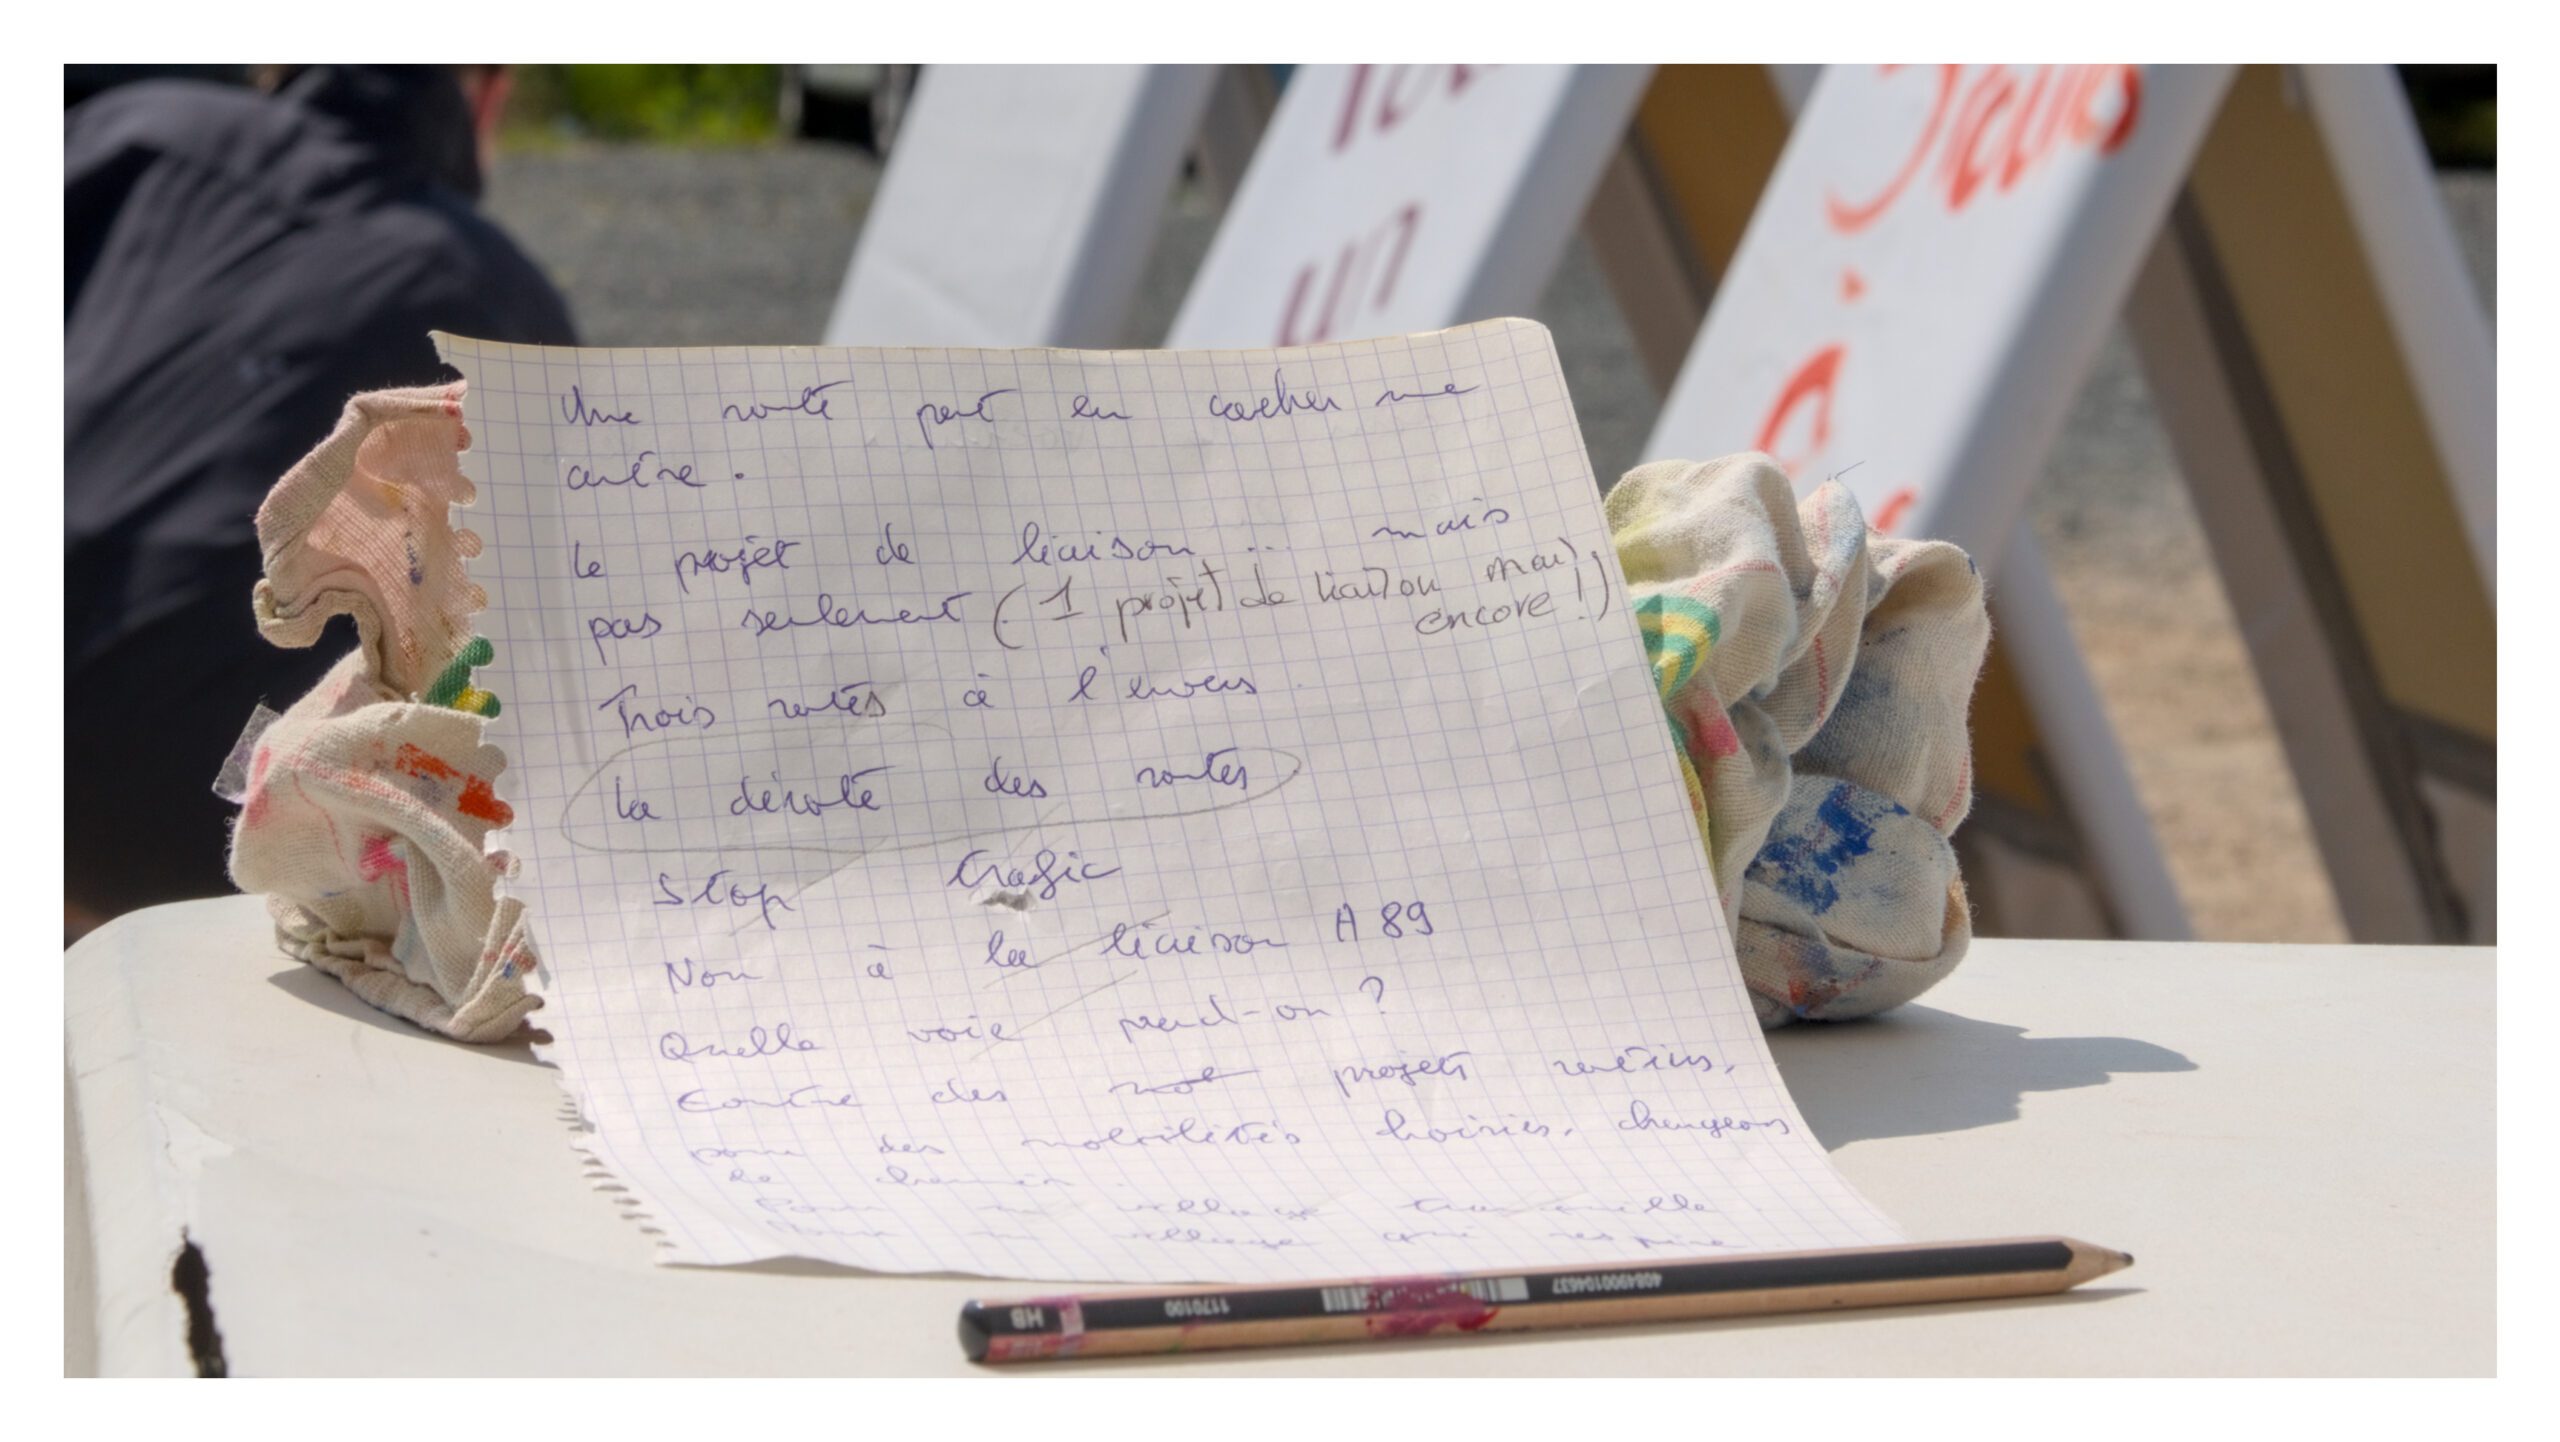 un
Une route peut en cacher une
autre.
Le projet de liaison ... mais
pas seulement (1 projet de liaison mais
encore!)
Trois routes à l'envers
La déroute des routes
Stop trafic
Non à la liaison A89
Quelle voie prend-on?
Contre des projets
pour des mobilités choisies, changeons
de chemin.
Pour un village tranquille
Pour un village qui respire.
HB 1170100 4084900104637